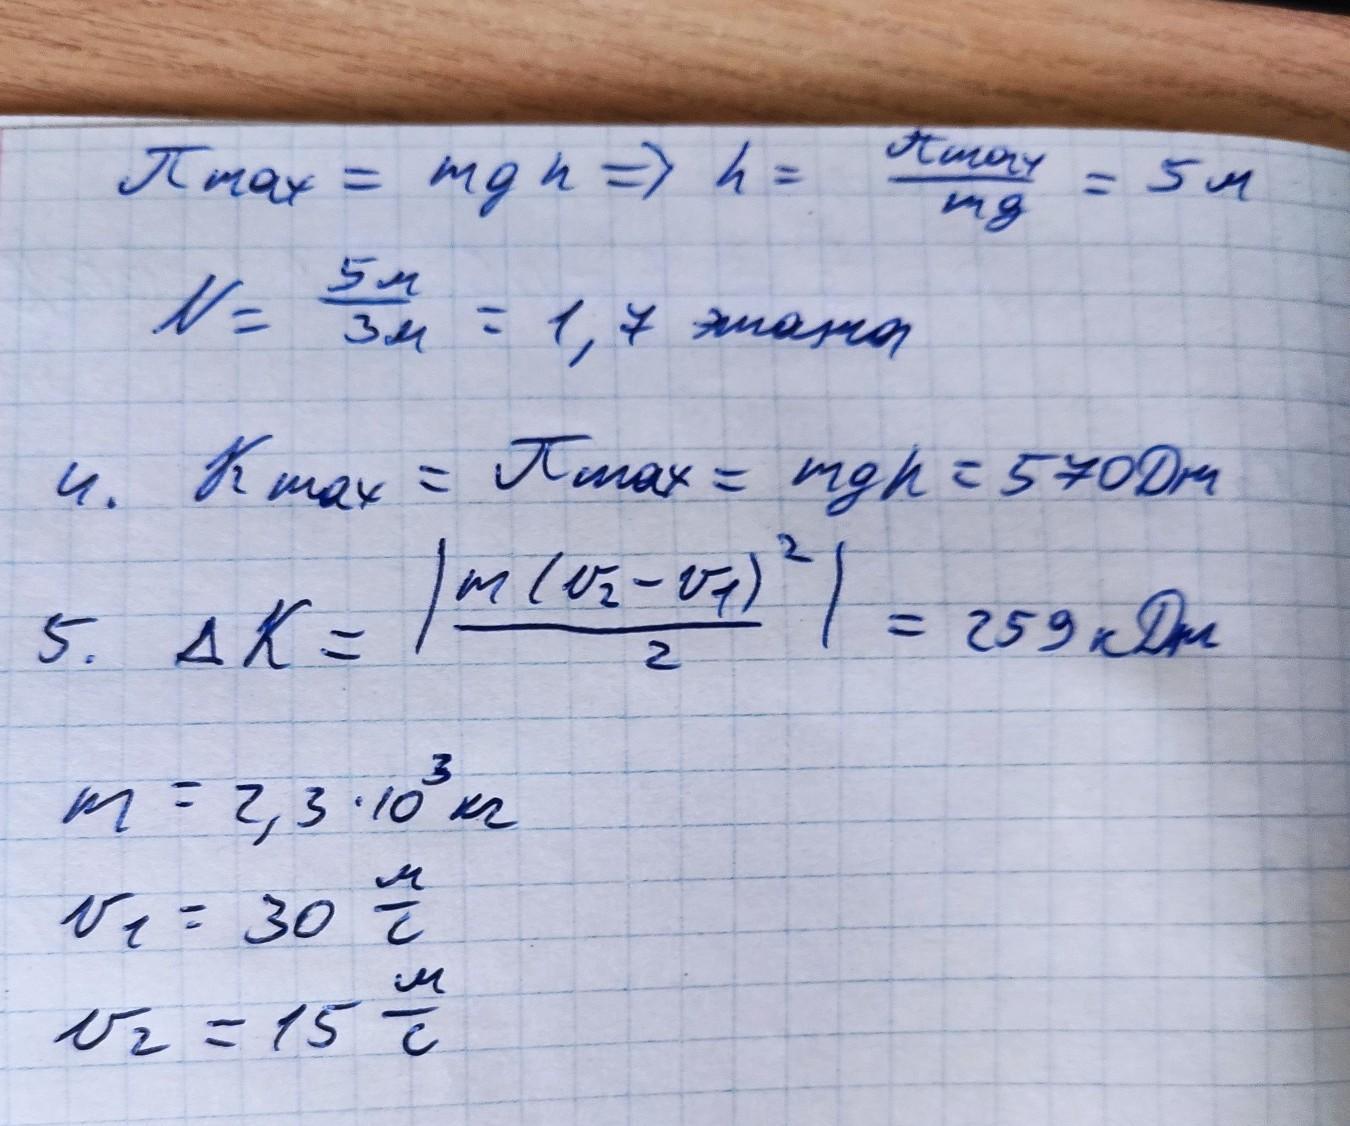 Пmax = mgh => h = Пmax/mg = 5 м
N = 5м/3м = 1,7 этажа
4. Kmax = Пmax = mgh = 570 Дж
5. ΔK = |m(v₂-v₁)²/2| = 259 кДж
m = 2,3·10³ кг
v₁ = 30 м/с
v₂ = 15 м/с